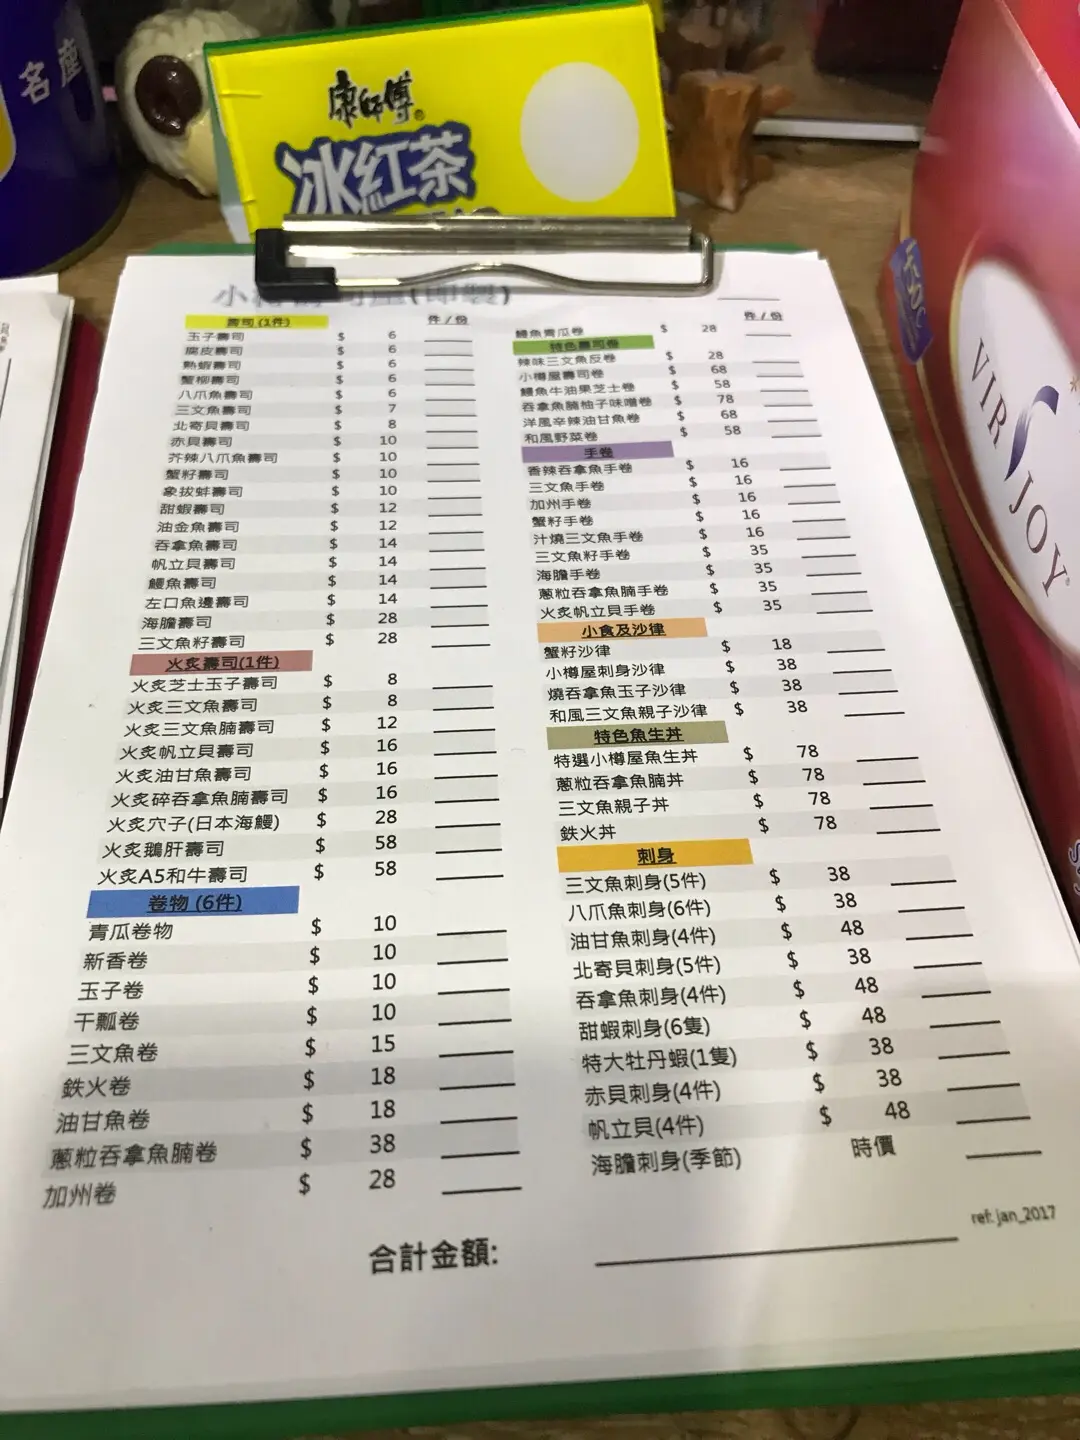 名產
康師傅
冰紅茶
VIRJOY
小樽壽司屋(即製)
壽司 (1件) 件 / 份
玉子壽司 $ 6
腐皮壽司 $ 6
熟蝦壽司 $ 6
蟹柳壽司 $ 6
八爪魚壽司 $ 6
三文魚壽司 $ 7
北寄貝壽司 $ 8
赤貝壽司 $ 10
芥辣八爪魚壽司 $ 10
蟹籽壽司 $ 10
象拔蚌壽司 $ 10
甜蝦壽司 $ 12
油金魚壽司 $ 12
吞拿魚壽司 $ 14
帆立貝壽司 $ 14
鰻魚壽司 $ 14
左口魚邊壽司 $ 14
海膽壽司 $ 28
三文魚籽壽司 $ 28
火炙壽司(1件)
火炙芝士玉子壽司 $ 8
火炙三文魚壽司 $ 8
火炙三文魚腩壽司 $ 12
火炙帆立貝壽司 $ 16
火炙油甘魚壽司 $ 16
火炙碎吞拿魚腩壽司 $ 16
火炙穴子(日本海鰻) $ 28
火炙鵝肝壽司 $ 58
火炙A5和牛壽司 $ 58
卷物 (6件)
青瓜卷物 $ 10
新香卷 $ 10
玉子卷 $ 10
干瓢卷 $ 10
三文魚卷 $ 15
鉄火卷 $ 18
油甘魚卷 $ 18
蔥粒吞拿魚腩卷 $ 38
加州卷 $ 28
件 / 份
鰻魚青瓜卷 $ 28
特色壽司卷
辣味三文魚反卷 $ 28
小樽屋壽司卷 $ 68
鰻魚牛油果芝士卷 $ 58
吞拿魚腩柚子味噌卷 $ 78
洋風辛辣油甘魚卷 $ 68
和風野菜卷 $ 58
手卷
香辣吞拿魚手卷 $ 16
三文魚手卷 $ 16
加州手卷 $ 16
蟹籽手卷 $ 16
汁燒三文魚手卷 $ 16
三文魚籽手卷 $ 35
海膽手卷 $ 35
蔥粒吞拿魚腩手卷 $ 35
火炙帆立貝手卷 $ 35
小食及沙律
蟹籽沙律 $ 18
小樽屋刺身沙律 $ 38
燒吞拿魚玉子沙律 $ 38
和風三文魚親子沙律 $ 38
特色魚生丼
特選小樽屋魚生丼 $ 78
蔥粒吞拿魚腩丼 $ 78
三文魚親子丼 $ 78
鉄火丼 $ 78
刺身
三文魚刺身(5件) $ 38
八爪魚刺身(6件) $ 38
油甘魚刺身(4件) $ 48
北寄貝刺身(5件) $ 38
吞拿魚刺身(4件) $ 48
甜蝦刺身(6隻) $ 48
特大牡丹蝦(1隻) $ 38
赤貝刺身(4件) $ 38
帆立貝(4件) $ 48
海膽刺身(季節) 時價
ref: jan_2017
合計金額: